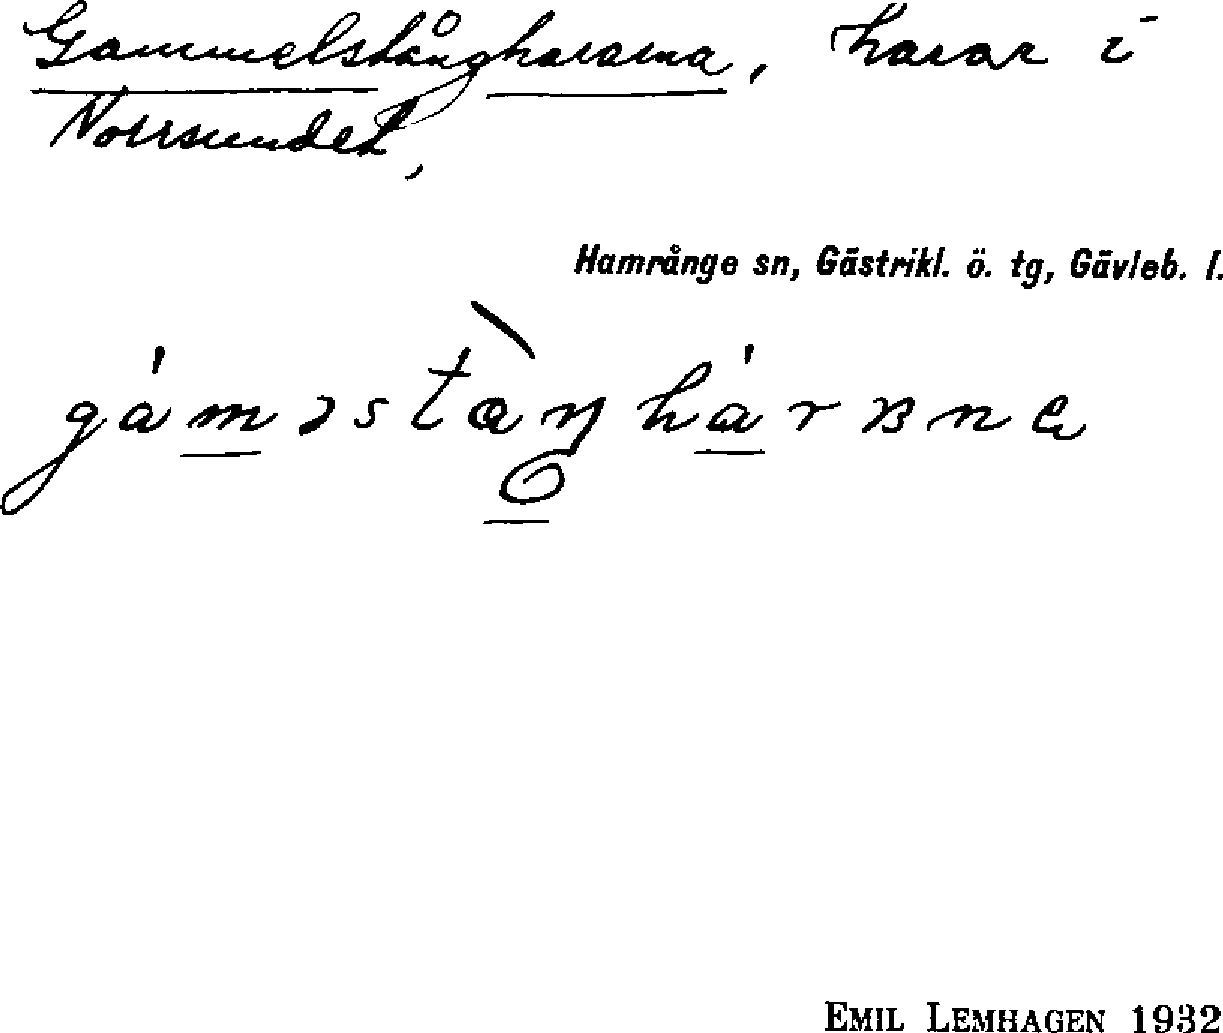 Gammelstånghararna, harar i
Norrsundet,
Hamrånge sn, Gästrikl. ö. tg, Gävleb. l.
EMIL LEMHAGEN 1932